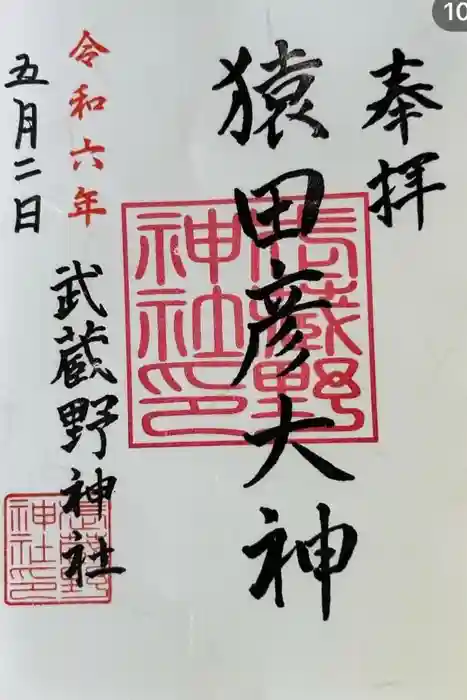 奉拝
猿田彦大神
武蔵野神社印
令和六年
五月二日
武蔵野神社
武蔵野神社印
10